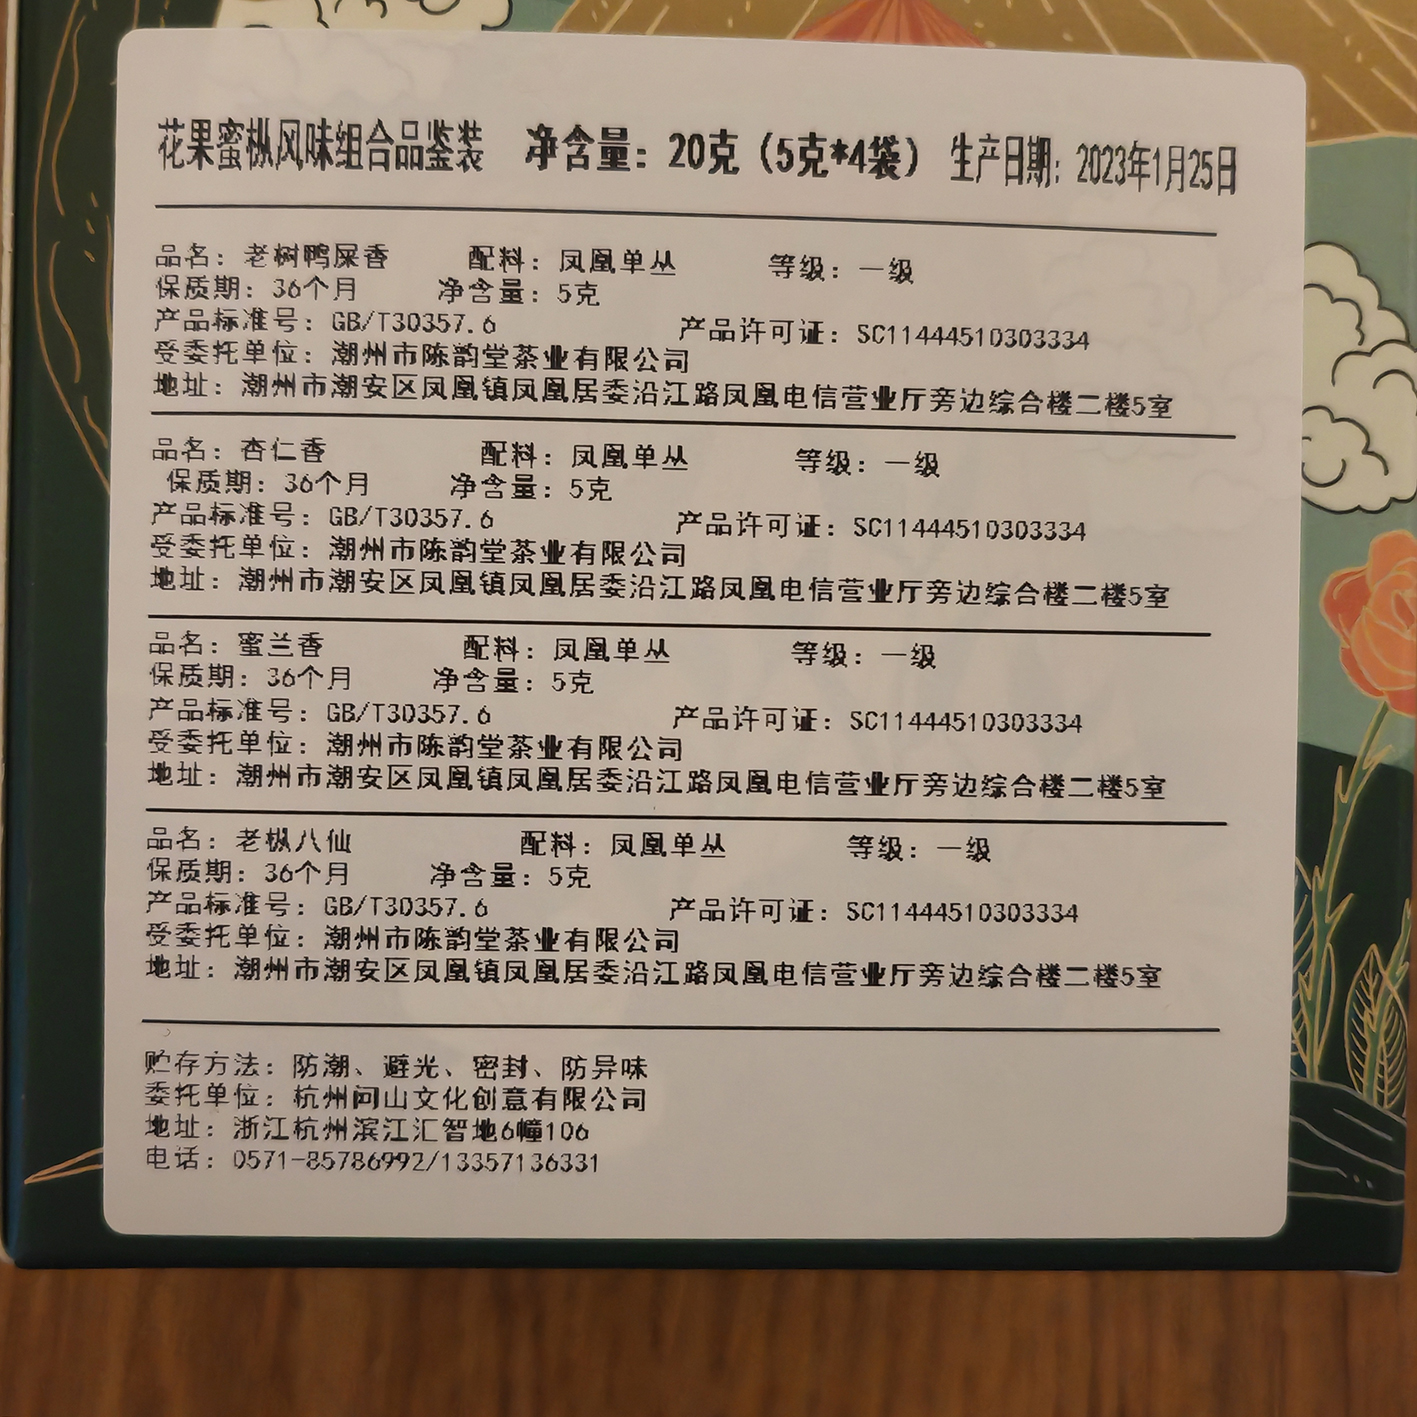 花果蜜枞风味组合品鉴装 净含量：20克（5克*4袋） 生产日期：2023年1月25日
品名：老树鸭屎香 配料：凤凰单丛 等级：一级
保质期：36个月 净含量：5克
产品标准号：GB/T30357.6 产品许可证：SC11444510303334
受委托单位：潮州市陈韵堂茶业有限公司
地址：潮州市潮安区凤凰镇凤凰居委沿江路凤凰电信营业厅旁边综合楼二楼5室
品名：杏仁香 配料：凤凰单丛 等级：一级
保质期：36个月 净含量：5克
产品标准号：GB/T30357.6 产品许可证：SC11444510303334
受委托单位：潮州市陈韵堂茶业有限公司
地址：潮州市潮安区凤凰镇凤凰居委沿江路凤凰电信营业厅旁边综合楼二楼5室
品名：蜜兰香 配料：凤凰单丛 等级：一级
保质期：36个月 净含量：5克
产品标准号：GB/T30357.6 产品许可证：SC11444510303334
受委托单位：潮州市陈韵堂茶业有限公司
地址：潮州市潮安区凤凰镇凤凰居委沿江路凤凰电信营业厅旁边综合楼二楼5室
品名：老枞八仙 配料：凤凰单丛 等级：一级
保质期：36个月 净含量：5克
产品标准号：GB/T30357.6 产品许可证：SC11444510303334
受委托单位：潮州市陈韵堂茶业有限公司
地址：潮州市潮安区凤凰镇凤凰居委沿江路凤凰电信营业厅旁边综合楼二楼5室
贮存方法：防潮、避光、密封、防异味
委托单位：杭州问山文化创意有限公司
地址：浙江杭州滨江汇智地6幢106
电话：0571-85786992/13357136331